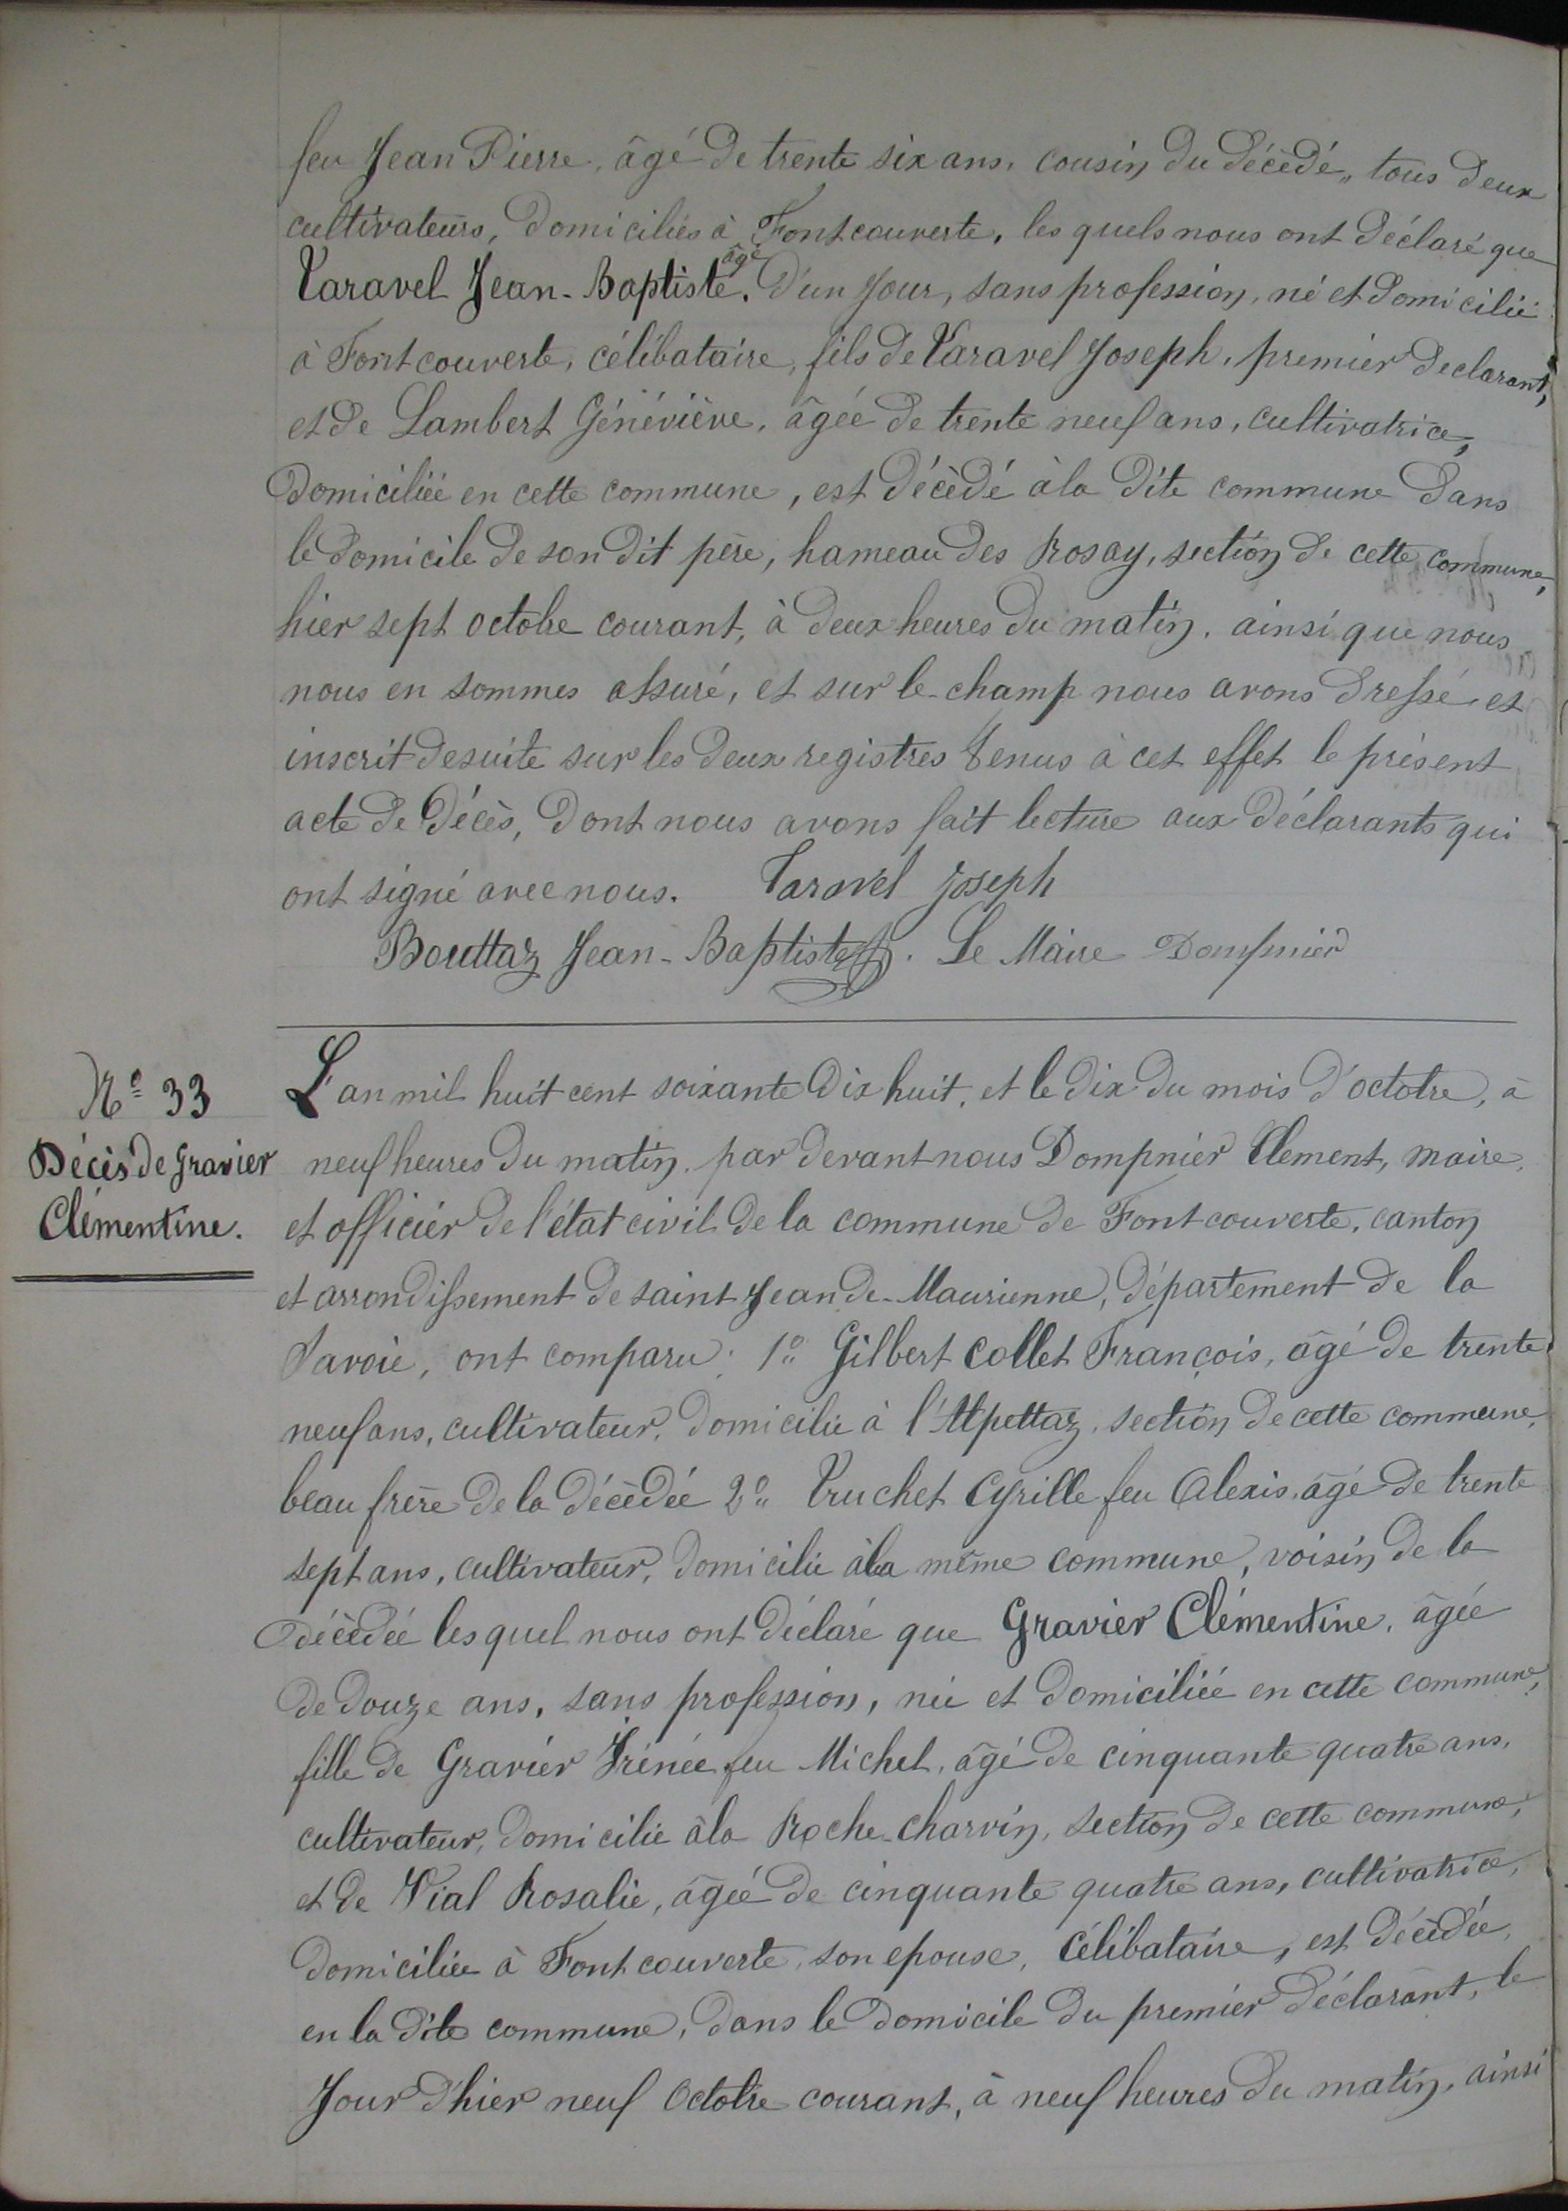 feu Jean Pierre, âgé de trente six ans, cousin du décèdé, tous deux
cultivateurs, domiciliés à Fontcouverte, les quels nous ont déclaré que
âgé
Taravel Jean-Baptiste, d'un jour, sans profession, né et domicilié
à Fontcouverte, célibataire, fils de Taravel Joseph, premier declarant,
et de Lambert Généviève, âgée de trente neuf ans, cultivatrice,
domiciliée en cette commune, est décèdé à la dite commune dans
le domicile de son dit père, hameau des Rosay, section de cette commune,
hier sept octobre courant, à deux heures du matin, ainsi que nous
nous en sommes assuré, et sur le-champ nous avons dressé et
inscrit desuite sur les deux registres tenus à cet effet le présent
acte de décès, dont nous avons fait lecture aux déclarants qui
ont signé avec nous. Taravel Joseph
Bouttaz Jean-Baptiste. Le Maire Dompnier
N° 33
Décès de Gravier
Clémentine.
L'an mil huit cent soixante dix huit, et le dix du mois d'octobre, à
neuf heures du matin, par devant nous Dompnier Clement, maire,
et officier de l'état civil de la commune de Fontcouverte, canton
et arrondissement de saint Jean de-Maurienne, département de la
Savoie, ont comparu: 1° Gilbert Collet François, âgé de trente
neuf ans, cultivateur, domicilié à l'Alpettaz, section de cette commune,
beau frère de la décèdée 2° Truchet Cyrille feu Alexis, âgé de trente
sept ans, cultivateur, domicilié à la même commune, voisin de la
décèdée les quel nous ont déclaré que Gravier Clémentine, âgée
de douze ans, sans profession, née et domiciliée en cette commune,
fille de Gravier Irénée feu Michel, âgé de cinquante quatre ans,
cultivateur, domicilié à la Roche-Charvin, section de cette commune,
et de Vial Rosalie, âgée de cinquante quatre ans, cultivatrice,
domiciliée à Fontcouverte, son epouse, célibataire, est décèdée,
en la dite commune, dans le domicile du premier déclarant, le
jour d'hier neuf octobre courant, à neuf heures du matin, ainsi